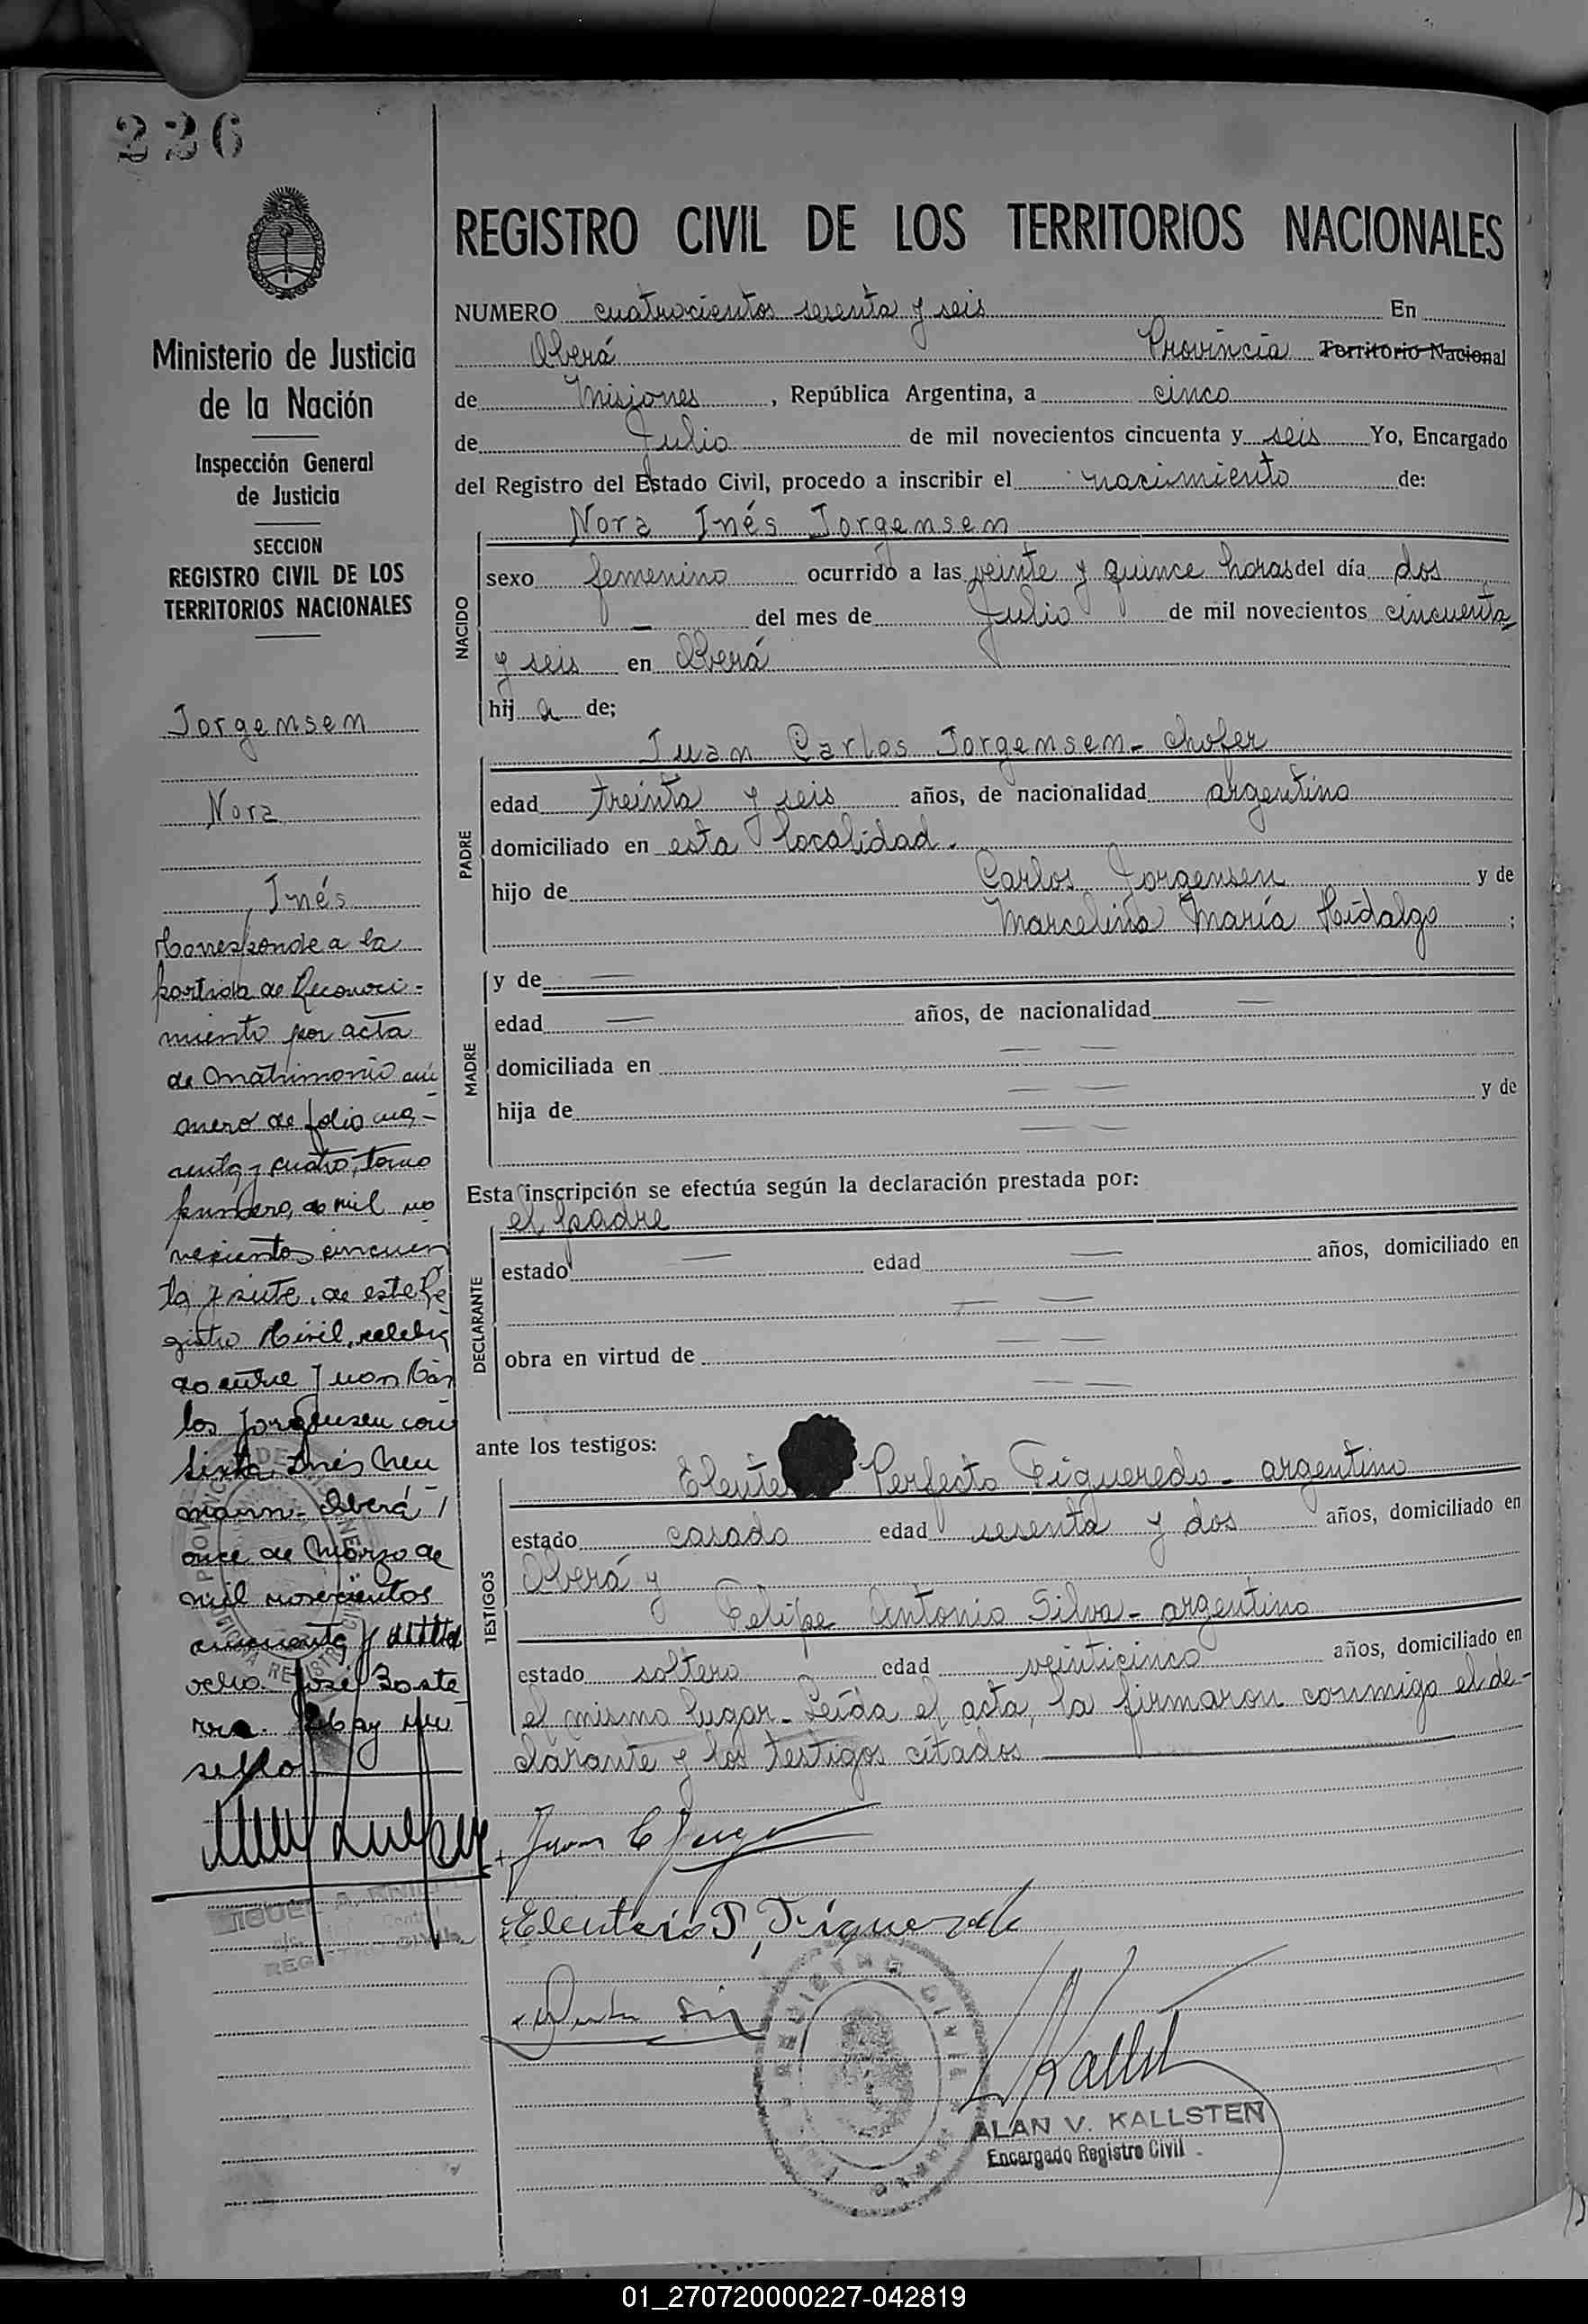 226
Ministerio de Justicia
de la Nación
Inspección General
de Justicia
SECCION
REGISTRO CIVIL DE LOS
TERRITORIOS NACIONALES
Jorgensen
Nora
Inés
Corresponde a la
partida de Reconoci-
miento por acta
de Matrimonio nú
mero de folio cua-
renta y cuatro, tomo
primero, de mil no
vecientos cincuen
ta y siete, de este Re
gistro Civil, celebra
do entre Juan Car
los Jorgensen con
Sixta Inés Neu
mann. Oberá,
once de Marzo de
mil novecientos
cincuenta y
ocho. José
Hay un
sello
REGISTRO CIVIL DE LOS TERRITORIOS NACIONALES
NUMERO cuatrocientos sesenta y seis En
Oberá Provincia Territorio Nacional
de Misiones, República Argentina, a cinco
de Julio de mil novecientos cincuenta y seis Yo, Encargado
del Registro del Estado Civil, procedo a inscribir el nacimiento de:
Nora Inés Jorgensen
NACIDO
sexo femenino ocurrido a las veinte y quince horas del día dos
— del mes de Julio de mil novecientos cincuenta
y seis en Oberá
hij a de;
Juan Carlos Jorgensen - chofer
PADRE
edad treinta y seis años, de nacionalidad argentino
domiciliado en esta localidad.
hijo de Carlos Jorgensen y de
Marcelina María Hidalgo ;
MADRE
y de —
edad — años, de nacionalidad —
domiciliada en — —
hija de — — y de
— —
Esta inscripción se efectúa según la declaración prestada por:
el padre
DECLARANTE
estado — edad — años, domiciliado en
— —
obra en virtud de — —
— —
ante los testigos:
TESTIGOS
Eleute Perfecto Figueredo - argentino
estado casado edad sesenta y dos años, domiciliado en
Oberá y
Felipe Antonio Silva - argentino
estado soltero edad veinticinco años, domiciliado en
el mismo lugar. Leída el acta, la firmaron conmigo el de-
clarante y los testigos citados
Juan C
Eleuterio P. Figueredo
Kallst
ALAN V. KALLSTEN
Encargado Registro Civil
01_270720000227-042819